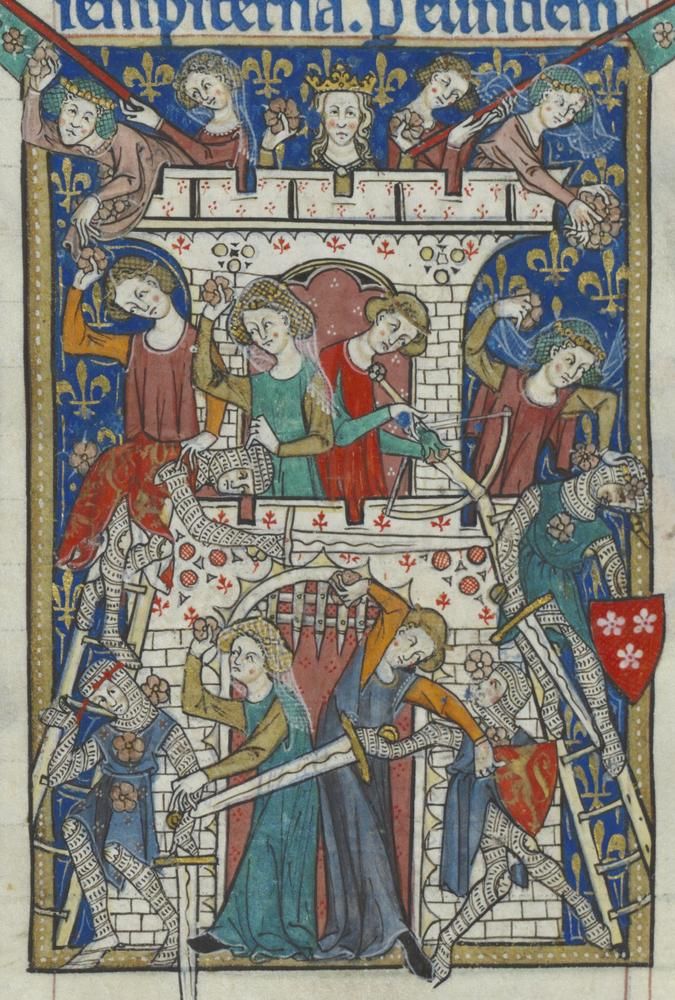 sempiterna. Per eundem